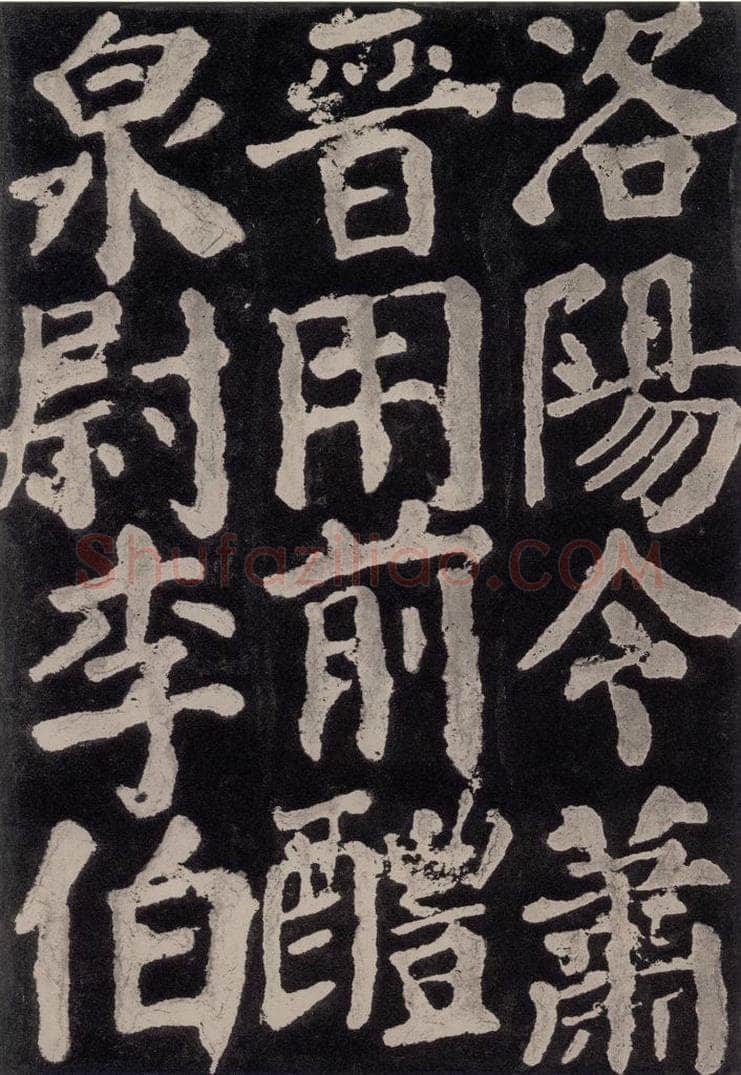 洛陽令蕭
晉用前醴
泉尉李伯
Shufaziliao.COM